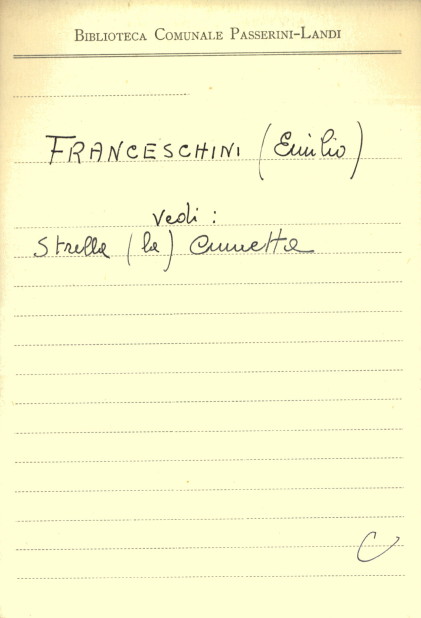 BIBLIOTECA COMUNALE PASSERINI-LANDI
FRANCESCHINI (Emilio)
vedi :
Strella (la) Cometta
C